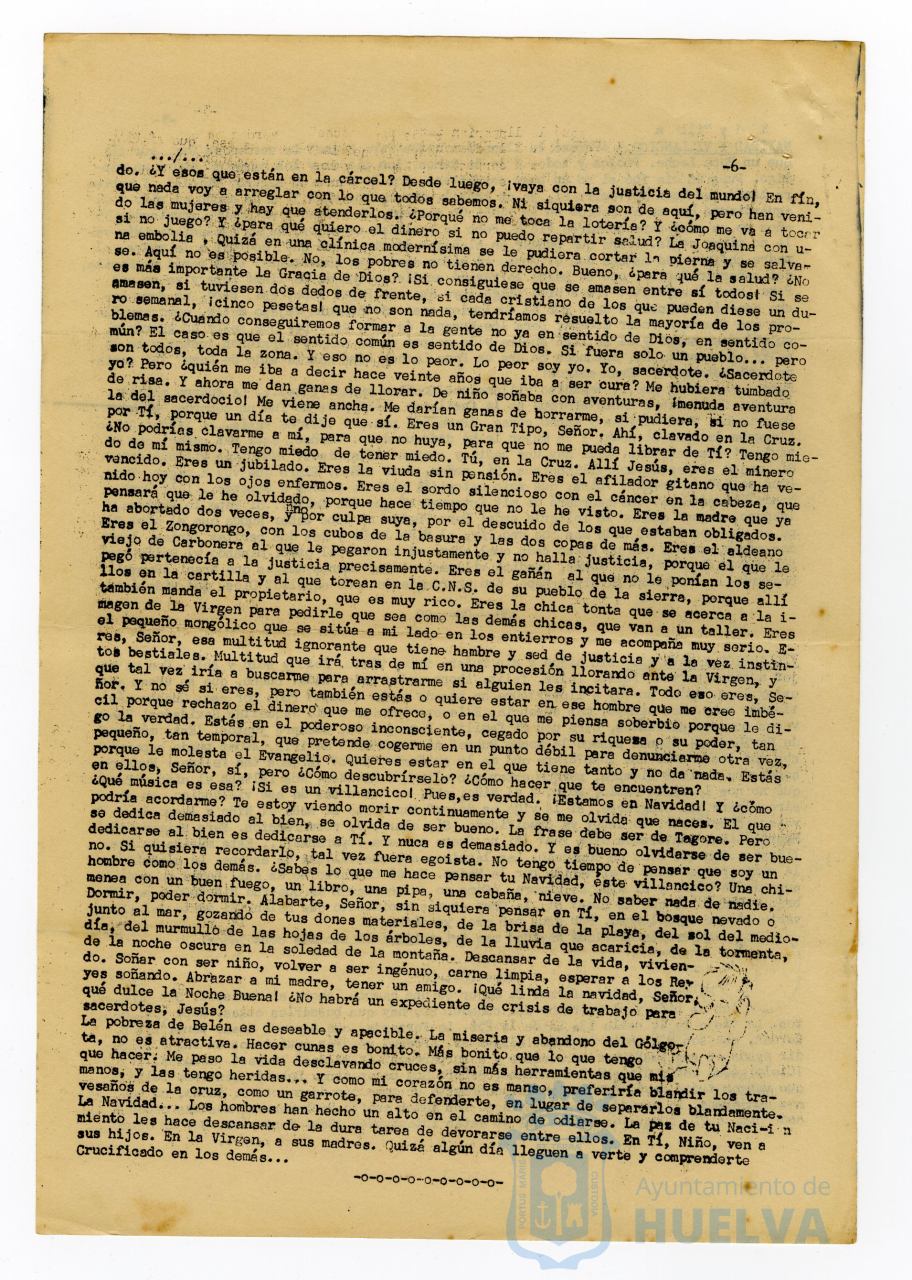 .../...
-6-
do. ¿Y esos que están en la cárcel? Desde luego, ¡vaya con la justicia del mundo! En fín,
que nada voy a arreglar con lo que todos sabemos. Ni siquiera son de aquí, pero han veni-
do las mujeres y hay que atenderlos. ¿Porqué no me toca la lotería? Y ¿cómo me va a tocar
si no juego? Y ¿para qué quiero el dinero si no puedo repartir salud? La Joaquina con u-
na embolia . Quizá en una clínica modernísima se le pudiera cortar la pierna y se salva-
se. Aquí no es posible. No, los pobres no tienen derecho. Bueno, ¿para qué la salud? ¿No
es más importante la Gracia de Dios? ¡Si consiguiese que se amasen entre sí todos! Si se
amasen, si tuviesen dos dedos de frente, si cada cristiano de los que pueden diese un du-
ro semanal, ¡cinco pesetas! que no son nada, tendríamos resuelto la mayoría de los pro-
blemas. ¿Cuando conseguiremos formar a la gente no ya en sentido de Dios, en sentido co-
mún? El caso es que el sentido común es sentido de Dios. Si fuera solo un pueblo... pero
son todos, toda la zona. Y eso no es lo peor. Lo peor soy yo. Yo, sacerdote. ¿Sacerdote
yo? Pero ¿quién me iba a decir hace veinte años que iba a ser cura? Me hubiera tumbado
de risa. Y ahora me dan ganas de llorar. De niño soñaba con aventuras, ¡menuda aventura
la del sacerdocio! Me viene ancha. Me darían ganas de borrarme, si pudiera, si no fuese
por Tí, porque un día te dije que sí. Eres un Gran Tipo, Señor. Ahí, clavado en la Cruz.
¿No podrías clavarme a mí, para que no huya, para que no me pueda librar de Tí? Tengo mie-
do de mí mismo. Tengo miedo de tener miedo. Tú, en la Cruz. Allí Jesús, eres el minero
vencido. Eres un jubilado. Eres la viuda sin pensión. Eres el afilador gitano que ha ve-
nido hoy con los ojos enfermos. Eres el sordo silencioso con el cáncer en la cabeza, que
pensará que le he olvidado, porque hace tiempo que no le he visto. Eres la madre que ya
ha abortado dos veces, y no por culpa suya, por el descuido de los que estaban obligados.
Eres el Zongorongo, con los cubos de la basura y las dos copas de más. Eres el aldeano
viejo de Carbonera al que le pegaron injustamente y no halla justicia, porque el que le
pegó pertenecía a la justicia precisamente. Eres el gañán al que no le ponían los se-
llos en la cartilla y al que torean en la C.N.S. de su pueblo de la sierra, porque allí
también manda el propietario, que es muy rico. Eres la chica tonta que se acerca a la i-
magen de la Virgen para pedirle que sea como las demás chicas, que van a un taller. Eres
el pequeño mongólico que se sitúa a mi lado en los entierros y me acompaña muy serio. E-
res, Señor, esa multitud ignorante que tiene hambre y sed de justicia y a la vez instin-
tos bestiales. Multitud que irá tras de mí en una procesión llorando ante la Virgen, y
que tal vez iría a buscarme para arrastrarme si alguien les incitara. Todo eso eres, Se-
ñor. Y no sé si eres, pero también estás o quiere estar en ese hombre que me cree imbé-
cil porque rechazo el dinero que me ofrece, o en el que me piensa soberbio porque le di-
go la verdad. Estás en el poderoso inconsciente, cegado por su riqueza o su poder, tan
pequeño, tan temporal, que pretende cogerme en un punto débil para denunciarme otra vez,
porque le molesta el Evangelio. Quieres estar en el que tiene tanto y no da nada. Estás
en ellos, Señor, sí, pero ¿Cómo descubrírselo? ¿Cómo hacer que te encuentren?
¿Qué música es esa? ¡Si es un villancico! Pues,es verdad. ¡Estamos en Navidad! Y ¿cómo
podría acordarme? Te estoy viendo morir continuamente y se me olvida que naces. El que
se dedica demasiado al bien, se olvida de ser bueno. La frase debe ser de Tagore. Pero
dedicarse al bien es dedicarse a Tí. Y nuca es demasiado. Y es bueno olvidarse de ser bue-
no. Si quisiera recordarlo, tal vez fuera egoista. No tengo tiempo de pensar que soy un
hombre como los demás. ¿Sabes lo que me hace pensar tu Navidad, éste villancico? Una chi-
menea con un buen fuego, un libro, una pipa, una cabaña, nieve. No saber nada de nadie.
Dormir, poder dormir. Alabarte, Señor, sin siquiera pensar en Tí, en el bosque nevado o
junto al mar, gozando de tus dones materiales, de la brisa de la playa, del sol del medio-
día, del murmullo de las hojas de los árboles, de la lluvia que acaricia, de la tormenta,
de la noche oscura en la soledad de la montaña. Descansar de la vida, vivien-
do. Soñar con ser niño, volver a ser ingénuo, carne limpia, esperar a los Re-
yes soñando. Abrazar a mi madre, tener un amigo. ¡Qué linda la navidad, Señor,
qué dulce la Noche Buena! ¿No habrá un expediente de crisis de trabajo para
sacerdotes, Jesús?
La pobreza de Belén es deseable y apacible. La miseria y abandono del Gólgo-
ta, no es atractiva. Hacer cunas es bonito. Más bonito que lo que tengo
que hacer. Me paso la vida desclavando cruces, sin más herramientas que mis
manos, y las tengo heridas... Y como mi corazón no es manso, preferiría blandir los tra-
vesaños de la cruz, como un garrote, para defenderte, en lugar de separarlos blandamente.
La Navidad... Los hombres han hecho un alto en el camino de odiarse. La paz de tu Naci-i n
miento les hace descansar de la dura tarea de devorarse entre ellos. En Tí, Niño, ven a
sus hijos. En la Virgen, a sus madres. Quizá algún día lleguen a verte y comprenderte
Crucificado en los demás...
-o-o-o-o-o-o-o-o-o-
PORTUS MARIS
CUSTODIA
Ayuntamiento de
HUELVA